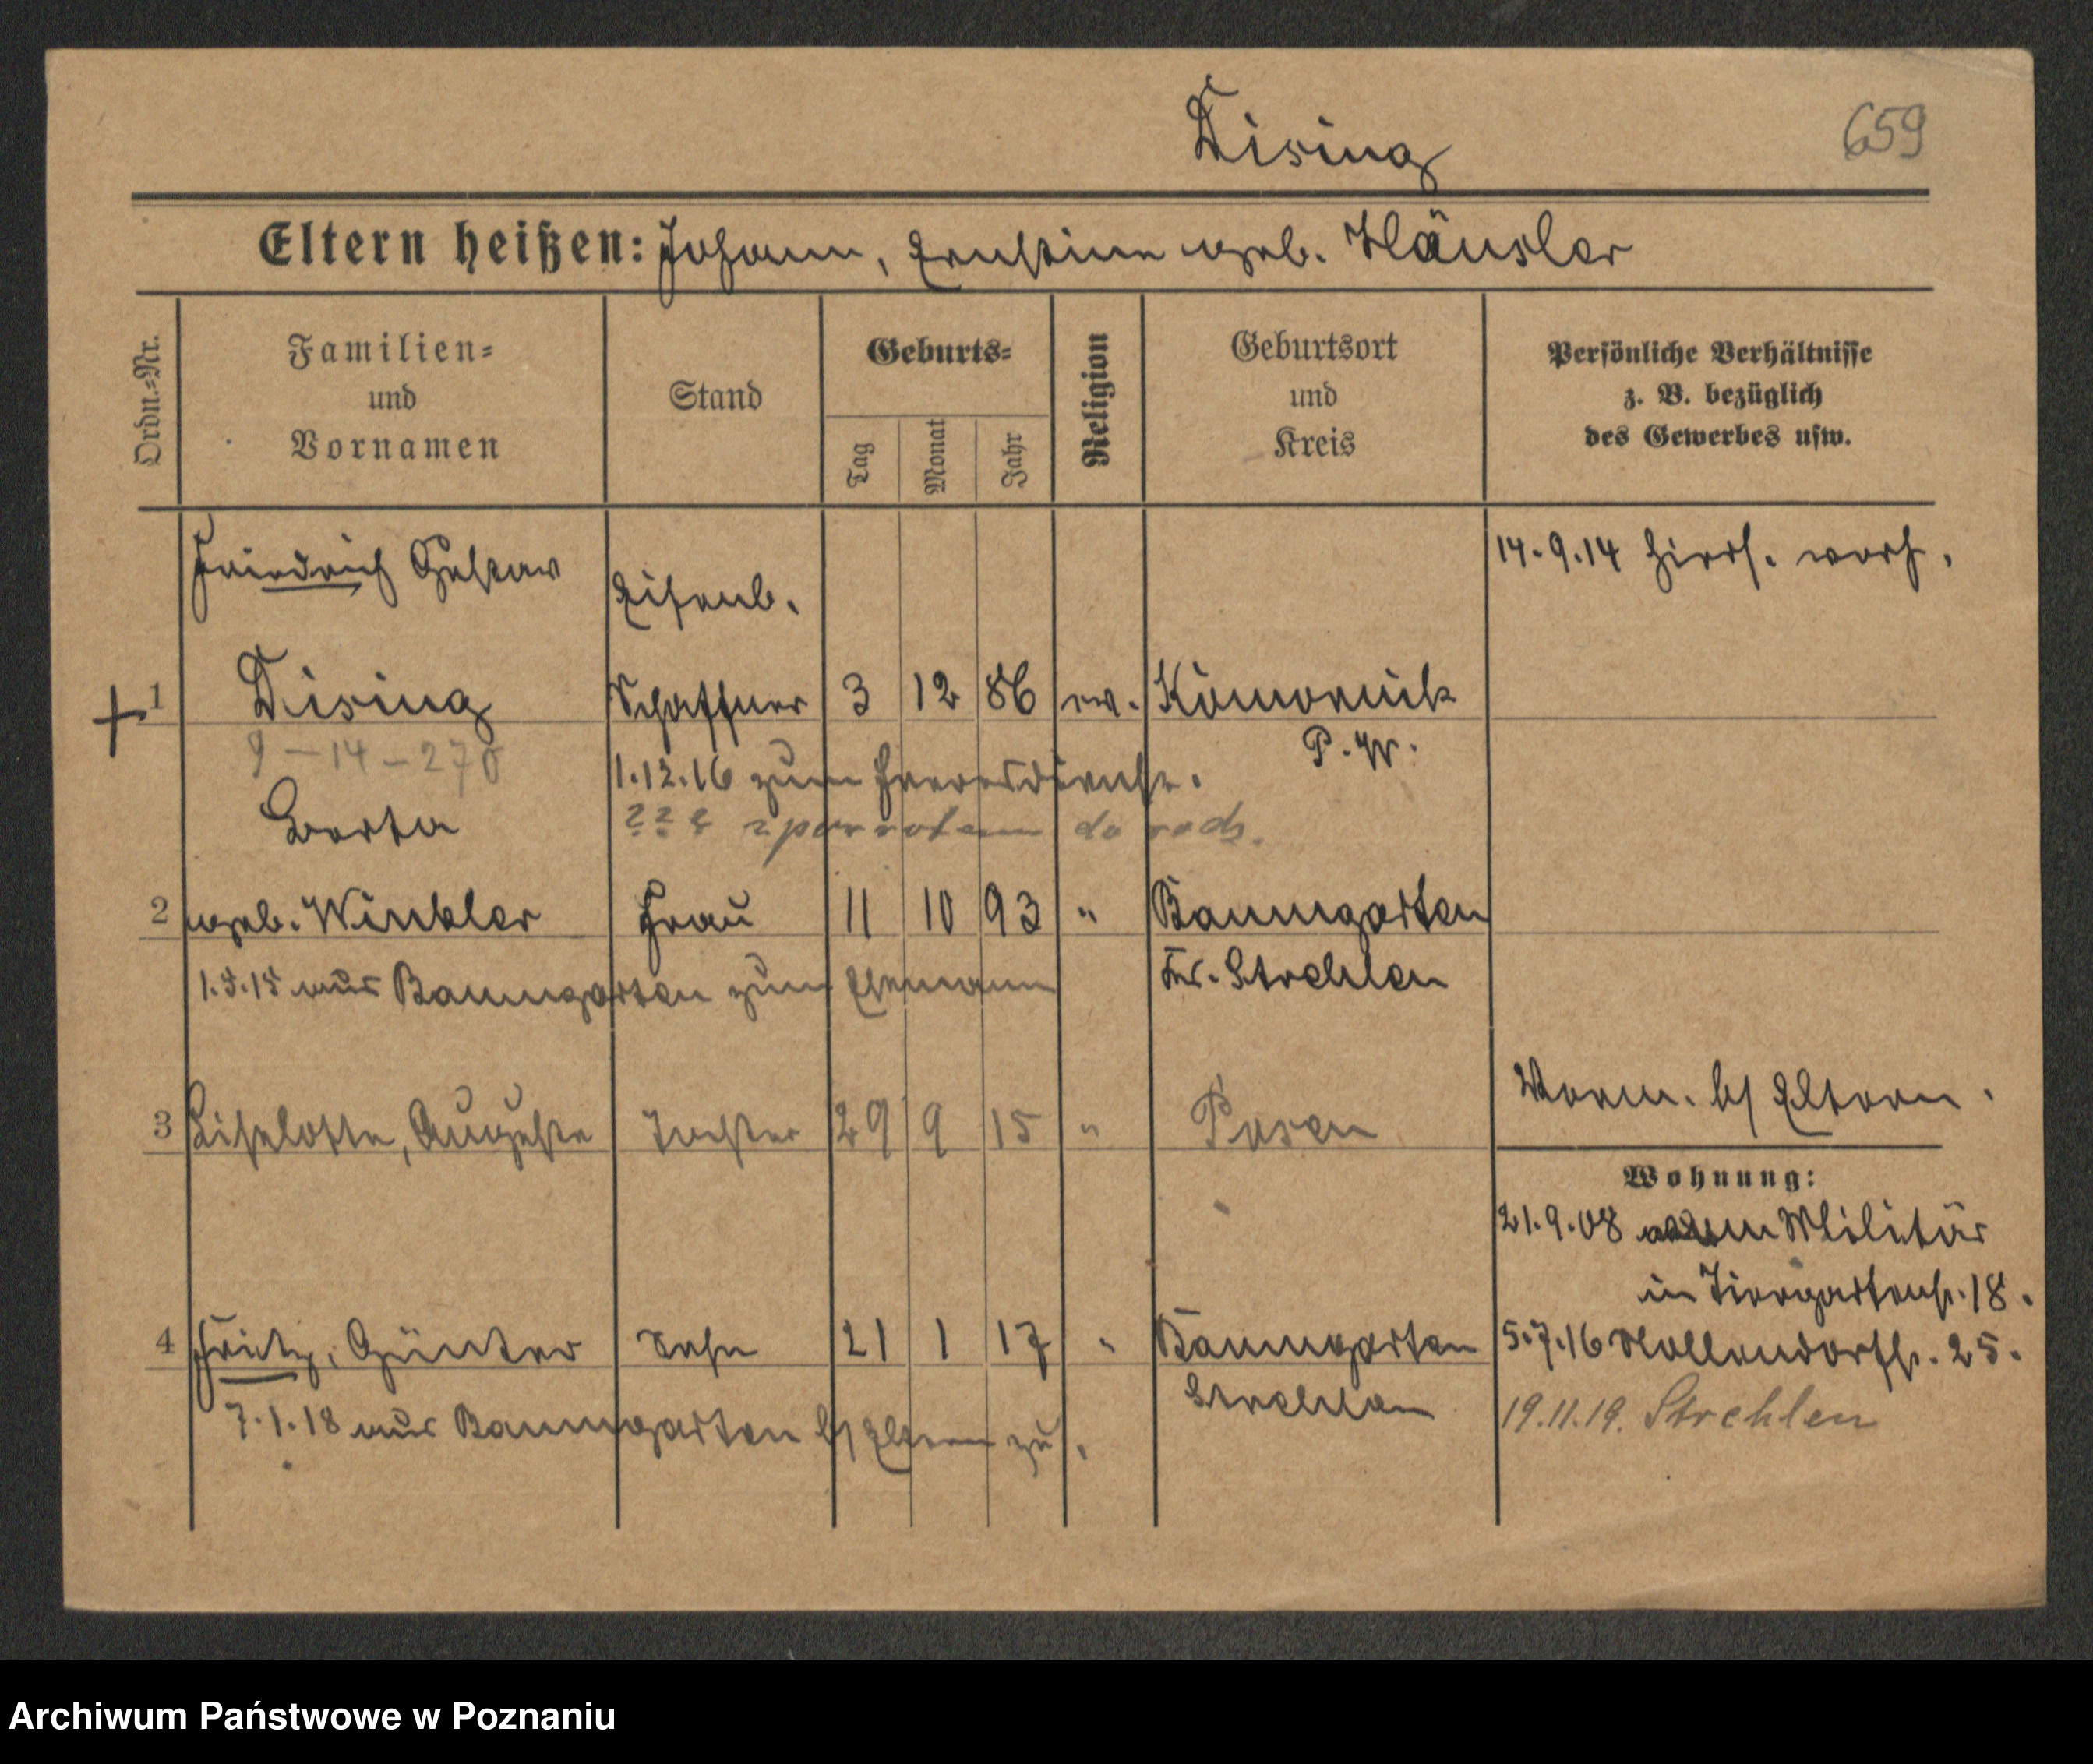 Dising
659
Eltern heißen: Johann, Ernstine geb. Häusler
Ordn.-Nr.
Familien-
und
Vornamen
Stand
Geburts-
Tag
Monat
Jahr
Religion
Geburtsort
und
Kreis
Persönliche Verhältnisse
z. B. bezüglich
des Gewerbes usw.
Friedrich Gustav
Eisenb.
14.9.14 hiers. verh.
1 Dising Schaffner 3 12 86 ev. Komornik
9-14-270
P. W.
1.12.16 zum Heeresdienst.
z powrotem do
Berta
2 geb. Winkler Frau 11 10 93 " Baumgarten
1.5.15 aus Baumgarten zum Ehemann
Kr. Strehlen
3 Liselotte, Auguste Tochter 29 9 15 " Posen
Verm. b/ Eltern.
Wohnung:
21.9.08 Militär
in Tiergartenstr. 18.
4 Fritz, Günter Sohn 21 1 17 " Baumgarten
Strehlen
5.7.16 Nollendorfstr. 25.
7.1.18 aus Baumgarten b/ Eltern zu.
19.11.19. Strehlen
Archiwum Państwowe w Poznaniu